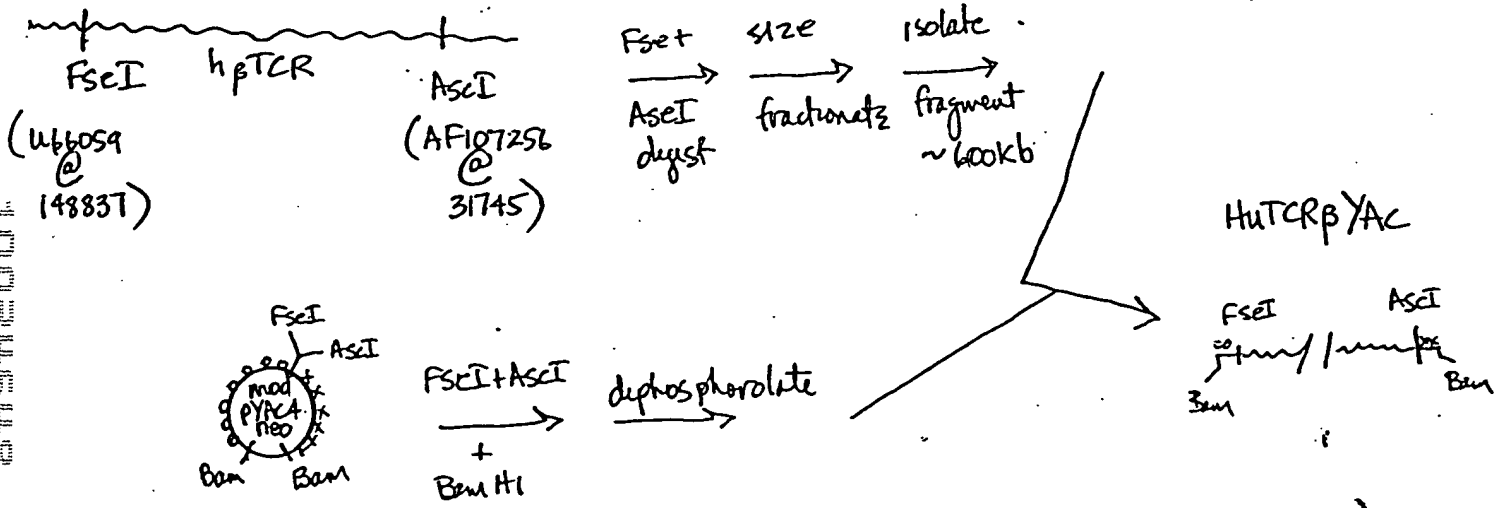 FseI hβTCR AscI
(U66059
@
148837)
(AF107256
@
31745)
Fse+
AscI
digest
size
fractionate
isolate
fragment
~600kb
HuTCRβ YAC
FseI AscI
Bam Bam
FseI
AscI
mod
pYAC4
neo
Bam Bam
FseI+AscI
+
Bam HI
dephosphorolate